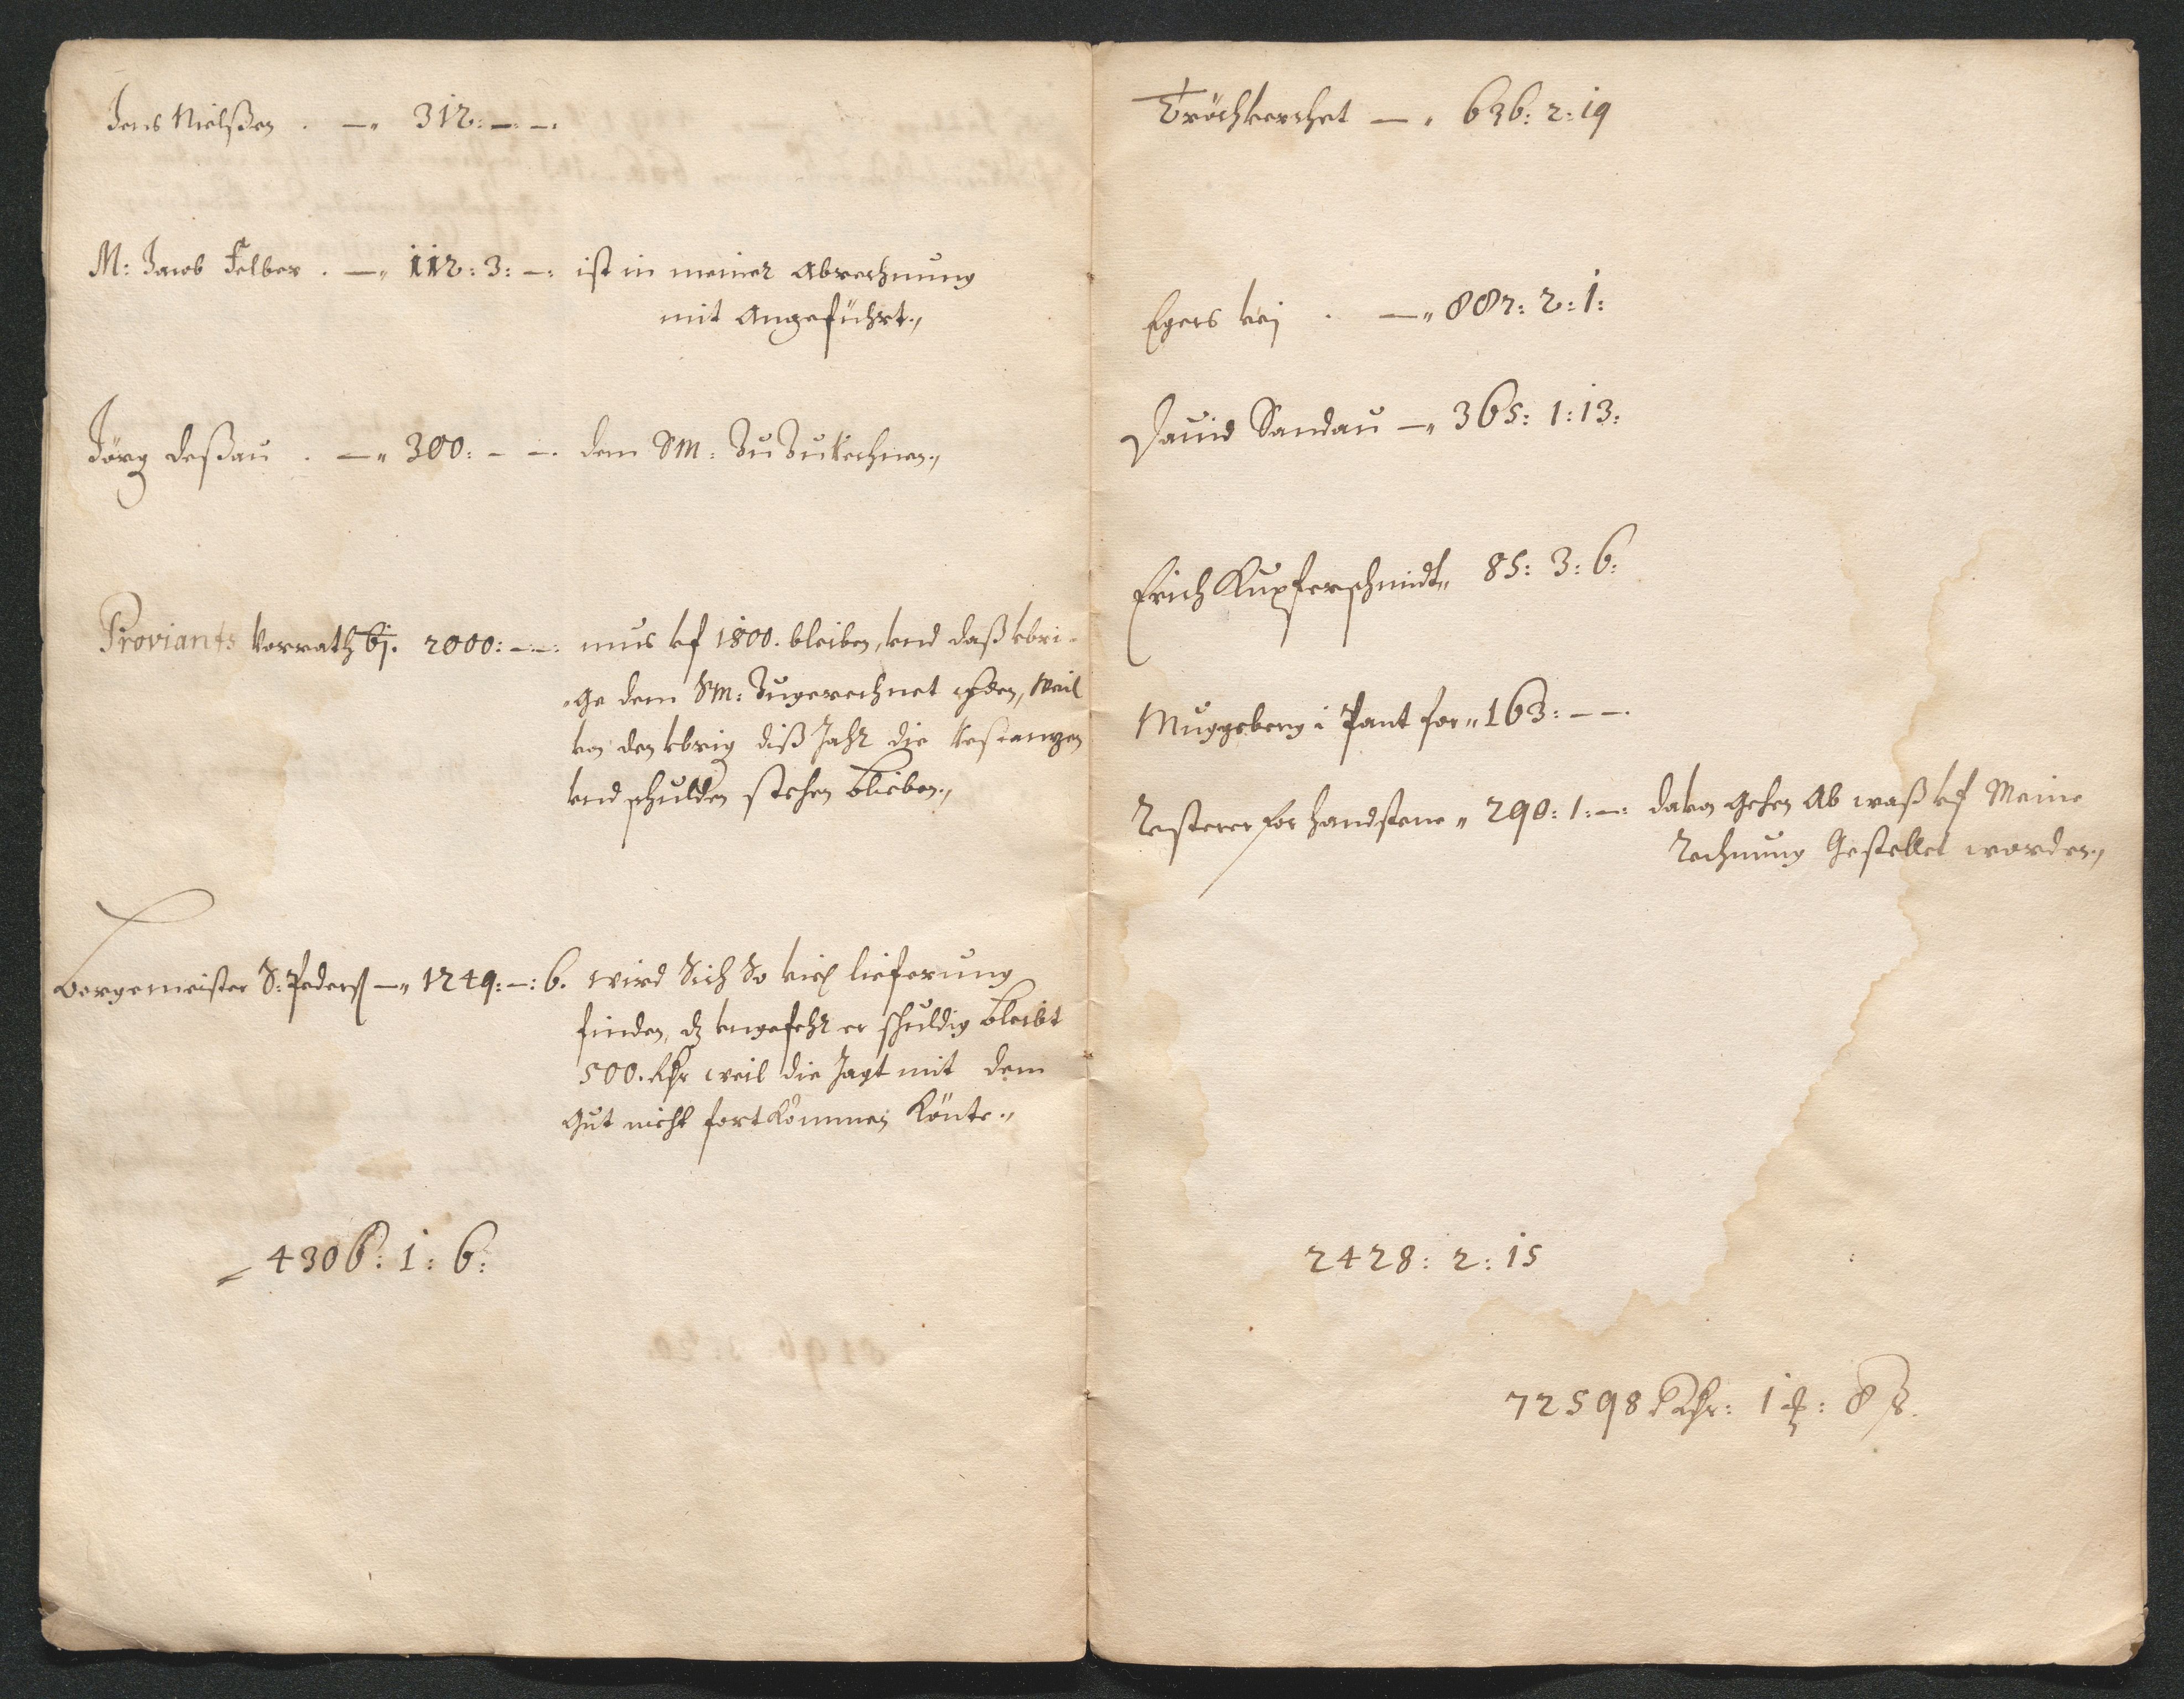 Jens Nielßen . —„ 312: —: —.
M: Jacob Felber . —„ 112: 3: —: ist in meiner Abrechnung
mit Angeführt.,
Jörg Deßau . —„ 300: — —. dem SM: Zu Zu Rechnen.,
Proviants Vorrath bj. 2000: —:—: mus vf 1800. bleiben, vnd daß vbri-
-ge dem SM: Zugerechnet werden, Weil
von den vbrig diß Jahr die Restanzen
vnd schulden stehen blieben.,
Bergemeister S: Pederß —„ 1249: —: 6. wird Sich So viel lieferung
finden, dz vngefehr er schuldig bleibt
500. Rthr weil die Jagt mit dem
Gut nicht fortkommen Könte.,
4306: 1: 6:
Tröchkerchet —„ 636: 2: 19
Egers vej . —„ 887: 2: 1:
David Sandau —„ 365: 1: 13:
Erich Kupferschmidt„ 85: 3: 6:
Muggeberg i Pant for „ 163: — —.
Resterer for handstene „ 290: 1: —: davon gehen Ab waß vf Meine
Rechnung Gestellet worden.,
2428: 2: 15
72598 Rthr: 1 : 8 ß.